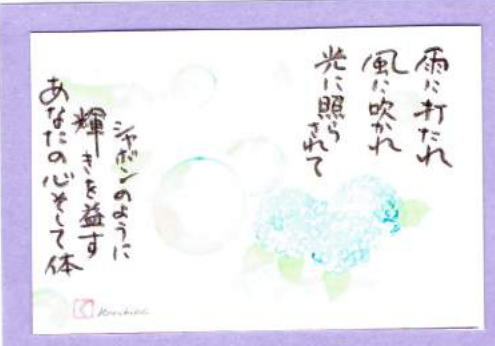 雨に打たれ
風に吹かれ
光に照らされて
シャボンのように
輝きを益す
あなたの心そして体